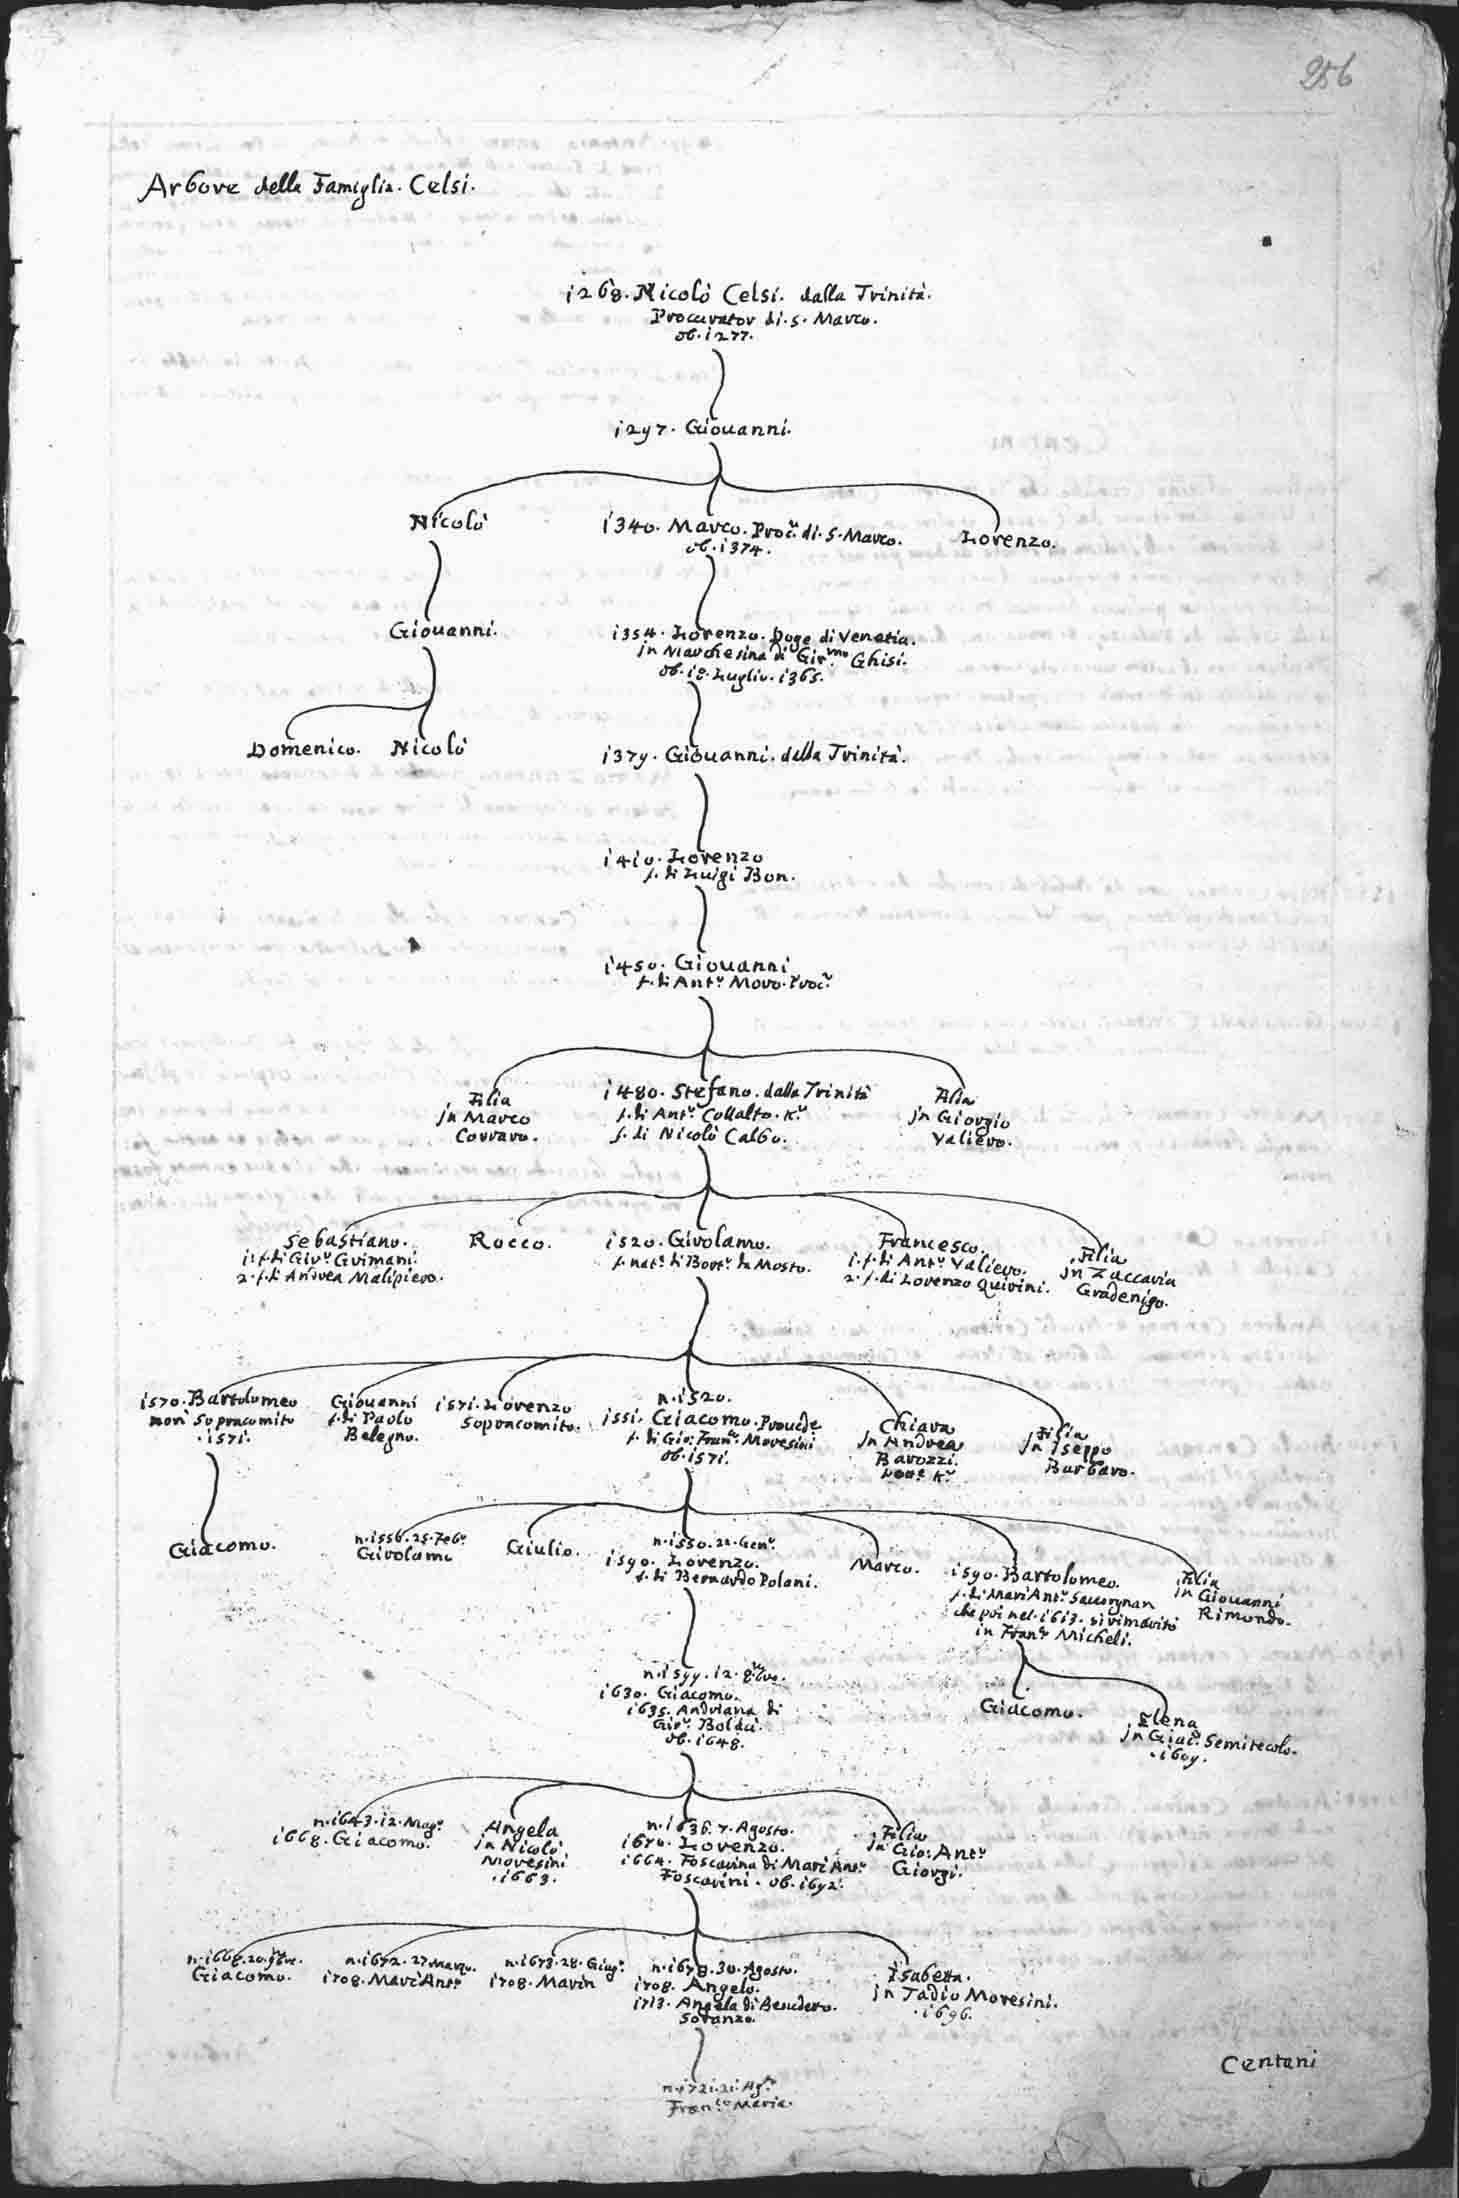 256
Arbore della Famiglia. Celsi.
1268. Nicolò Celsi. dalla Trinità.
Procurator di. S. Marco.
ob. 1277.
1297. Giouanni.
Nicolò
1340. Marco. Proc.r di. S. Marco.
ob. 1374.
Lorenzo.
Giouanni.
1354. Lorenzo. Doge di Venetia.
jn Marchesina di Gir.mo Ghisi.
ob. 18. Luglio. 1365.
Domenico.
Nicolò
1379. Giouanni. della Trinità.
1410. Lorenzo
f. di Luigi Bon.
1450. Giouanni
f. di Ant.o Moro. Proc.r
Filia
jn Marco
Corraro.
1480. Stefano. dalla Trinità
f. di Ant.o Collalto. K.r
f. di Nicolò Calbo.
Filia
jn Giorgio
Valiero.
Sebastiano.
1. f. di Gir.o Grimani.
2. f. di Andrea Malipiero.
Rocco.
1520. Girolamo.
f. nat. di Bort.o da Mosto.
Francesco.
1. f. di Ant.o Valiero.
2. f. di Lorenzo Quirini.
Filia
jn Zaccaria
Gradenigo.
1570. Bartolomeo
morì Sopracomito
. 1571.
Giouanni
f. di Paolo
Belegno.
1571. Lorenzo
Sopracomito.
n. 1520.
1551. Giacomo. Proued.e
f. di Gio: Fran.o Moresini
ob. 1571.
Chiara
jn Andrea
Barozzi.
K.r
Filia
jn Iseppo
Barbaro.
Giacomo.
n. 1556. 25. Feb.o
Girolamo
Giulio.
n. 1550. 22. Gen.o
1590. Lorenzo.
f. di Bernardo Polani.
Marco.
1590. Bartolomeo.
f. di Mari Ant.o Sauorgnan
che poi nel. 1613. si rimaritò
in Fran.o Micheli.
Filia
jn Giouanni
Rimondo.
n. 1599. 12. 8bre.
1630. Giacomo.
1635. Andriana di
Gir.o Boldù.
ob. 1648.
Giacomo.
Elena
jn Giac.o Semitecolo.
. 1609.
n. 1643. 12. Mag.o
1668. Giacomo.
Angela
in Nicolò
Moresini
. 1663.
n. 1636. 7. Agosto.
1670. Lorenzo.
1664. Foscarina di Mari Ant.o
Foscarini. ob. 1692.
Filia
jn Gio: Ant.o
Giorgi.
n. 1668. 20. 9bre.
Giacomo.
n. 1672. 27 Marzo.
1708. Mari Ant.o
n. 1673. 28. Giug.o
1708. Marin
n. 1678. 30. Agosto.
1708. Angelo.
1713. Angela di Benederto.
Soranzo.
Isabetta.
jn Tadio Moresini.
. 1696.
n. 1721. 21. Ag.to
Fran.co Maria.
Centani